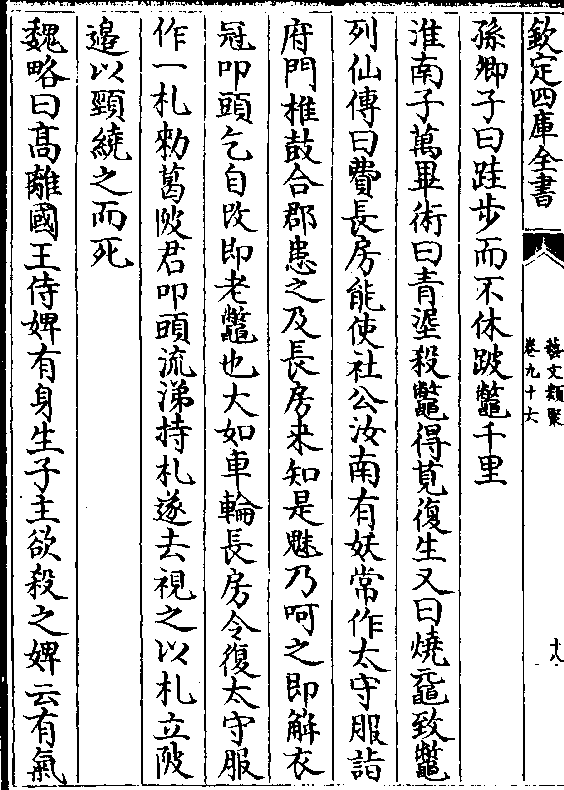 欽定四庫全書
藝文類聚
卷九十六
十八
孫卿子曰跬步而不休跛鼈千里
淮南子萬畢術曰青埿殺鼈得莧復生又曰燒黿致鼈
列仙傳曰費長房能使社公汝南有妖常作太守服詣
府門椎鼓合郡患之及長房来知是魅乃呵之即解衣
冠叩頭乞自改即老鼈也大如車輪長房令復太守服
作一札勑葛陂君叩頭流涕持札遂去視之以札立陂
邉以頸繞之而死
魏略曰髙離國王侍婢有身生子主欲殺之婢云有氣